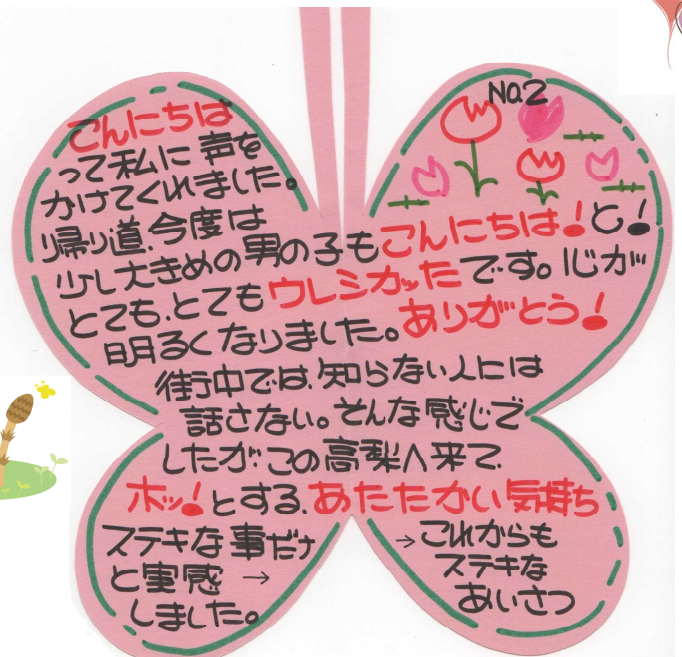 No2
こんにちは
って私に声を
かけてくれました。
帰り道、今度は
少し大きめの男の子もこんにちは!と!
とても、とてもウレシカッたです。心が
明るくなりました。ありがとう!
街中では、知らない人には
話さない。そんな感じで
したが、この高梨へ来て、
ホッ!とする、あたたかい気持ち
ステキな事だナ
と実感→
しました。
→これからも
ステキな
あいさつ